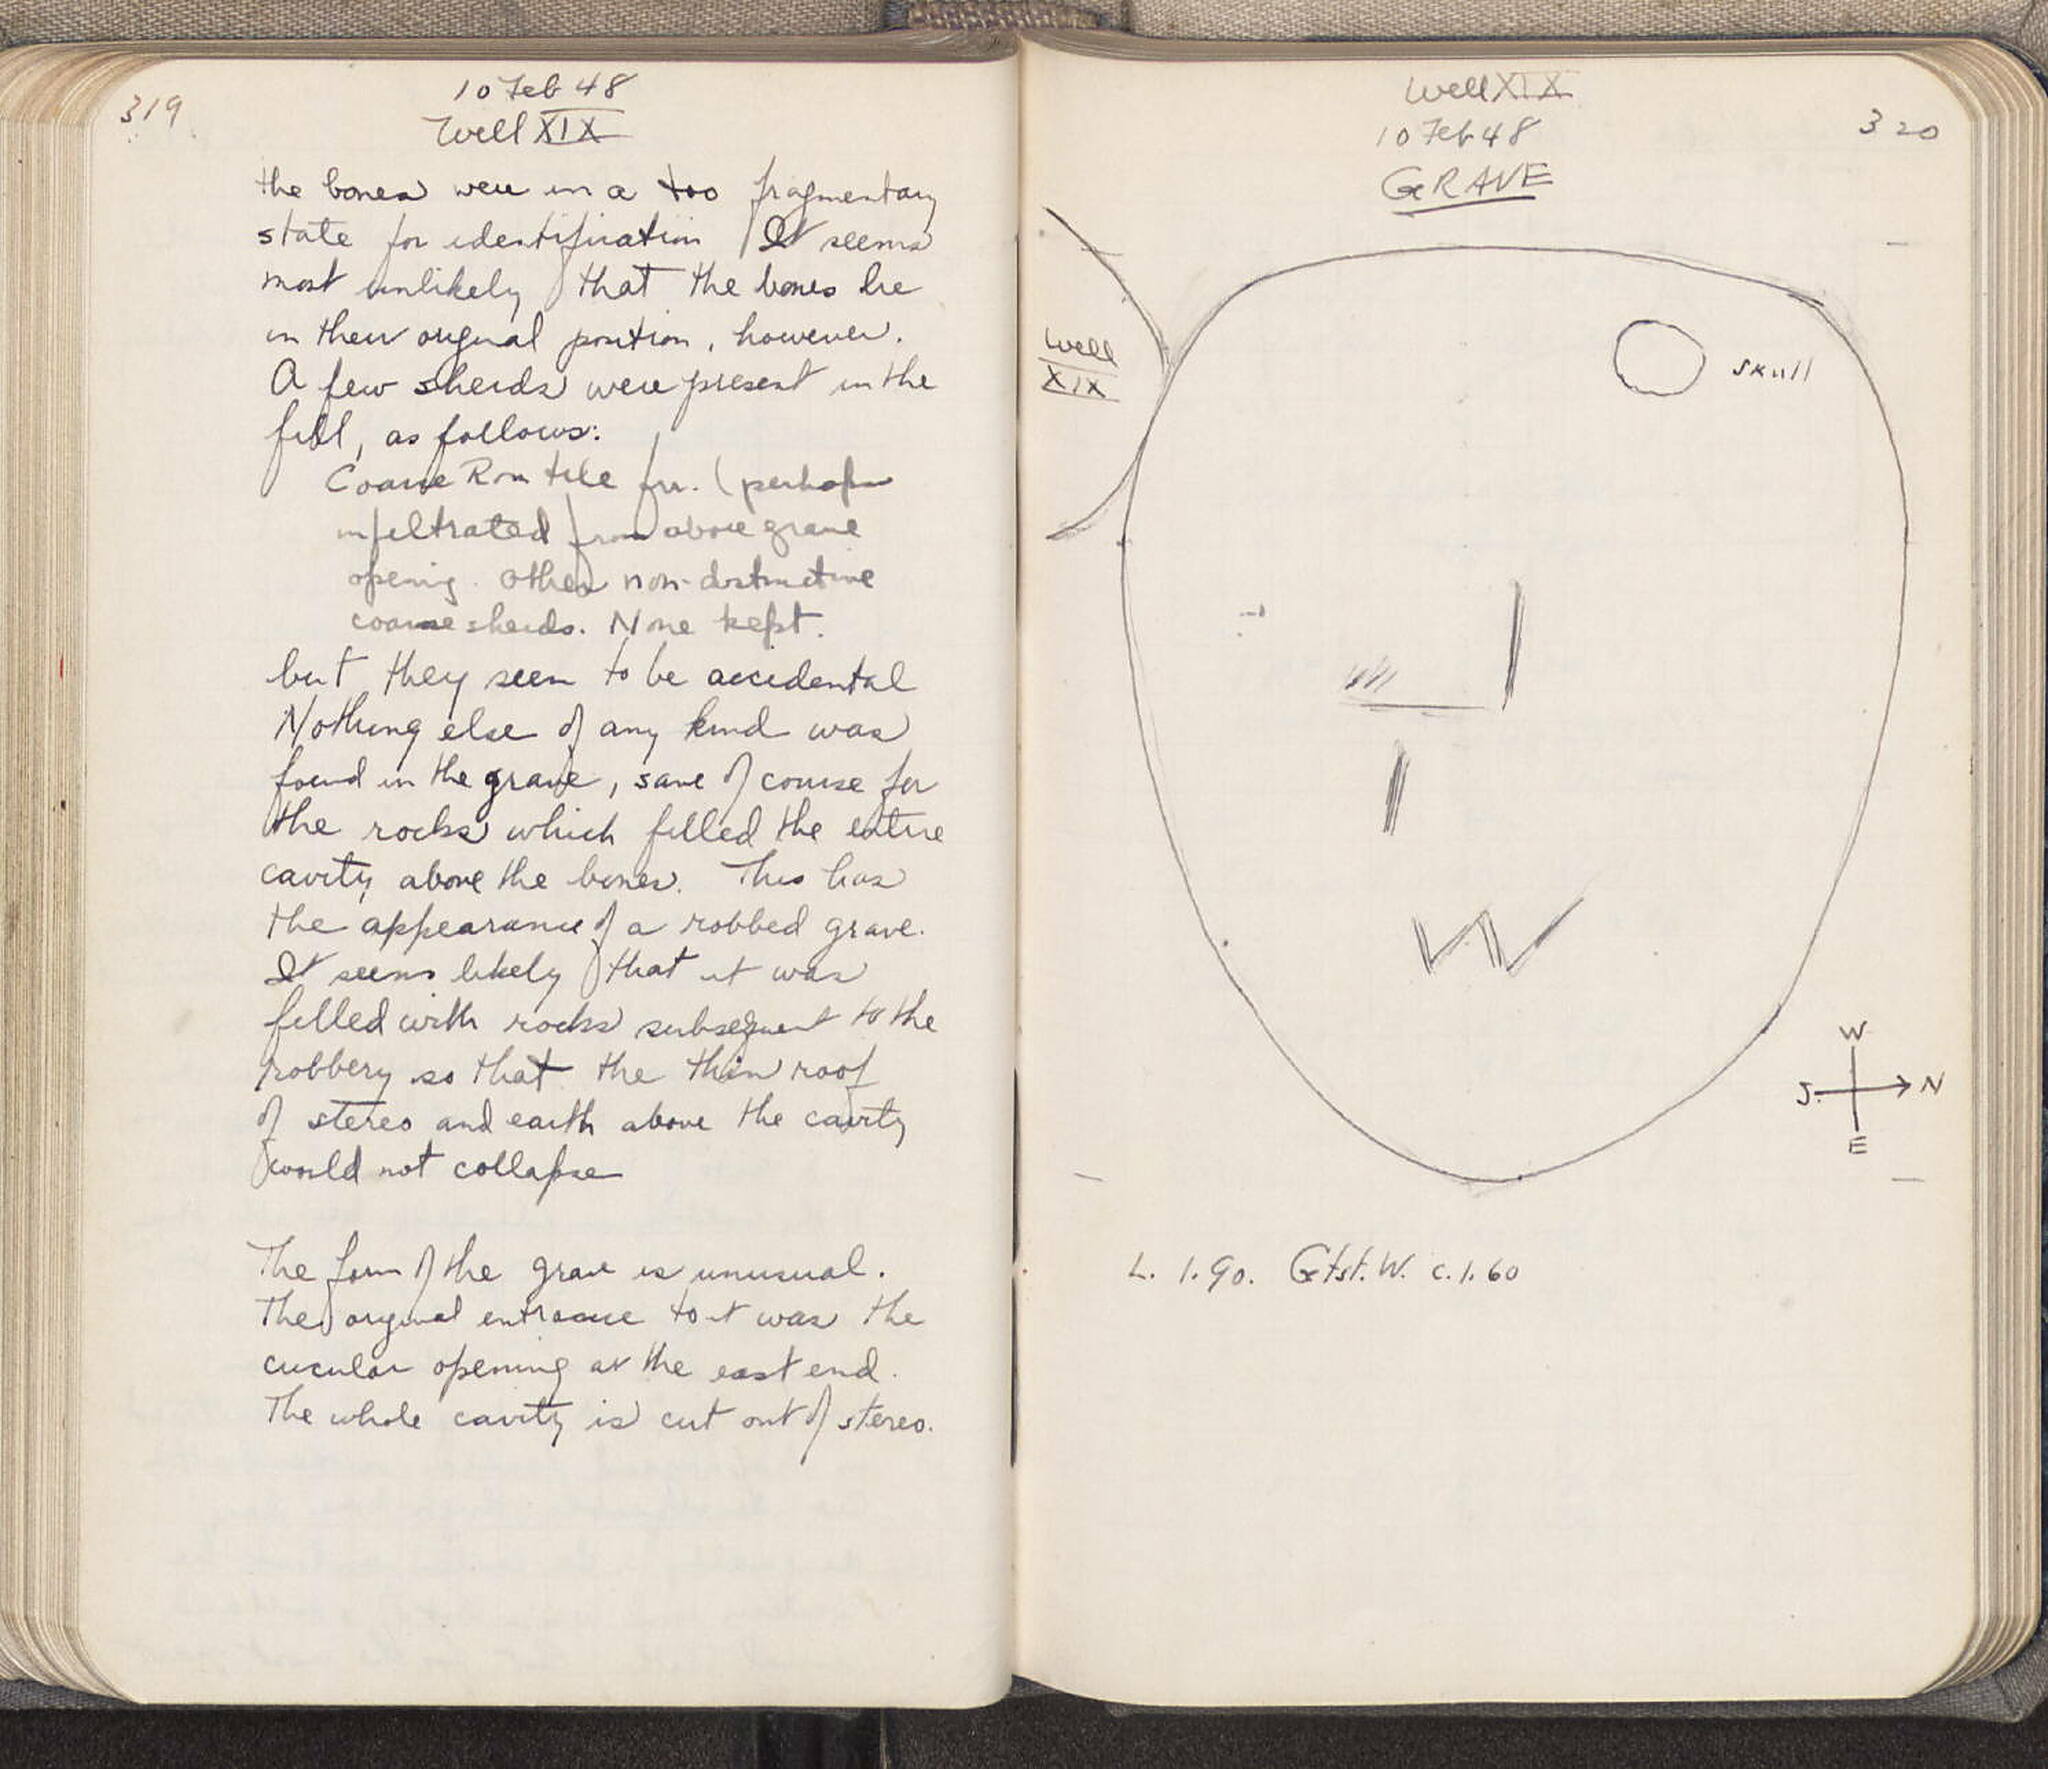 319
10 Feb 48
Well XIX
the bones were in a too fragmentary
state for identification It seems
most unlikely that the bones lie
in their original position, however.
A few sherds were present in the
fill, as follows:
Coarse Rom tile frr. (perhaps
infiltrated from above grave
opening. Other non-distinctive
coarse sherds. None kept.
but they seem to be accidental
Nothing else of any kind was
found in the grave, save of course for
the rocks which filled the entire
cavity above the bones. This has
the appearance of a robbed grave.
It seems likely that it was
filled with rocks subsequent to the
robbery so that the thin roof
of stereo and earth above the cavity
would not collapse
The form of the grave is unusual.
The original entrance to it was the
circular opening at the east end.
The whole cavity is cut out of stereo.
Well XIX
10 Feb 48
320
GRAVE
Well
XIX
skull
W
S. N
E
L. 1.90. Gtst. W. c. 1.60